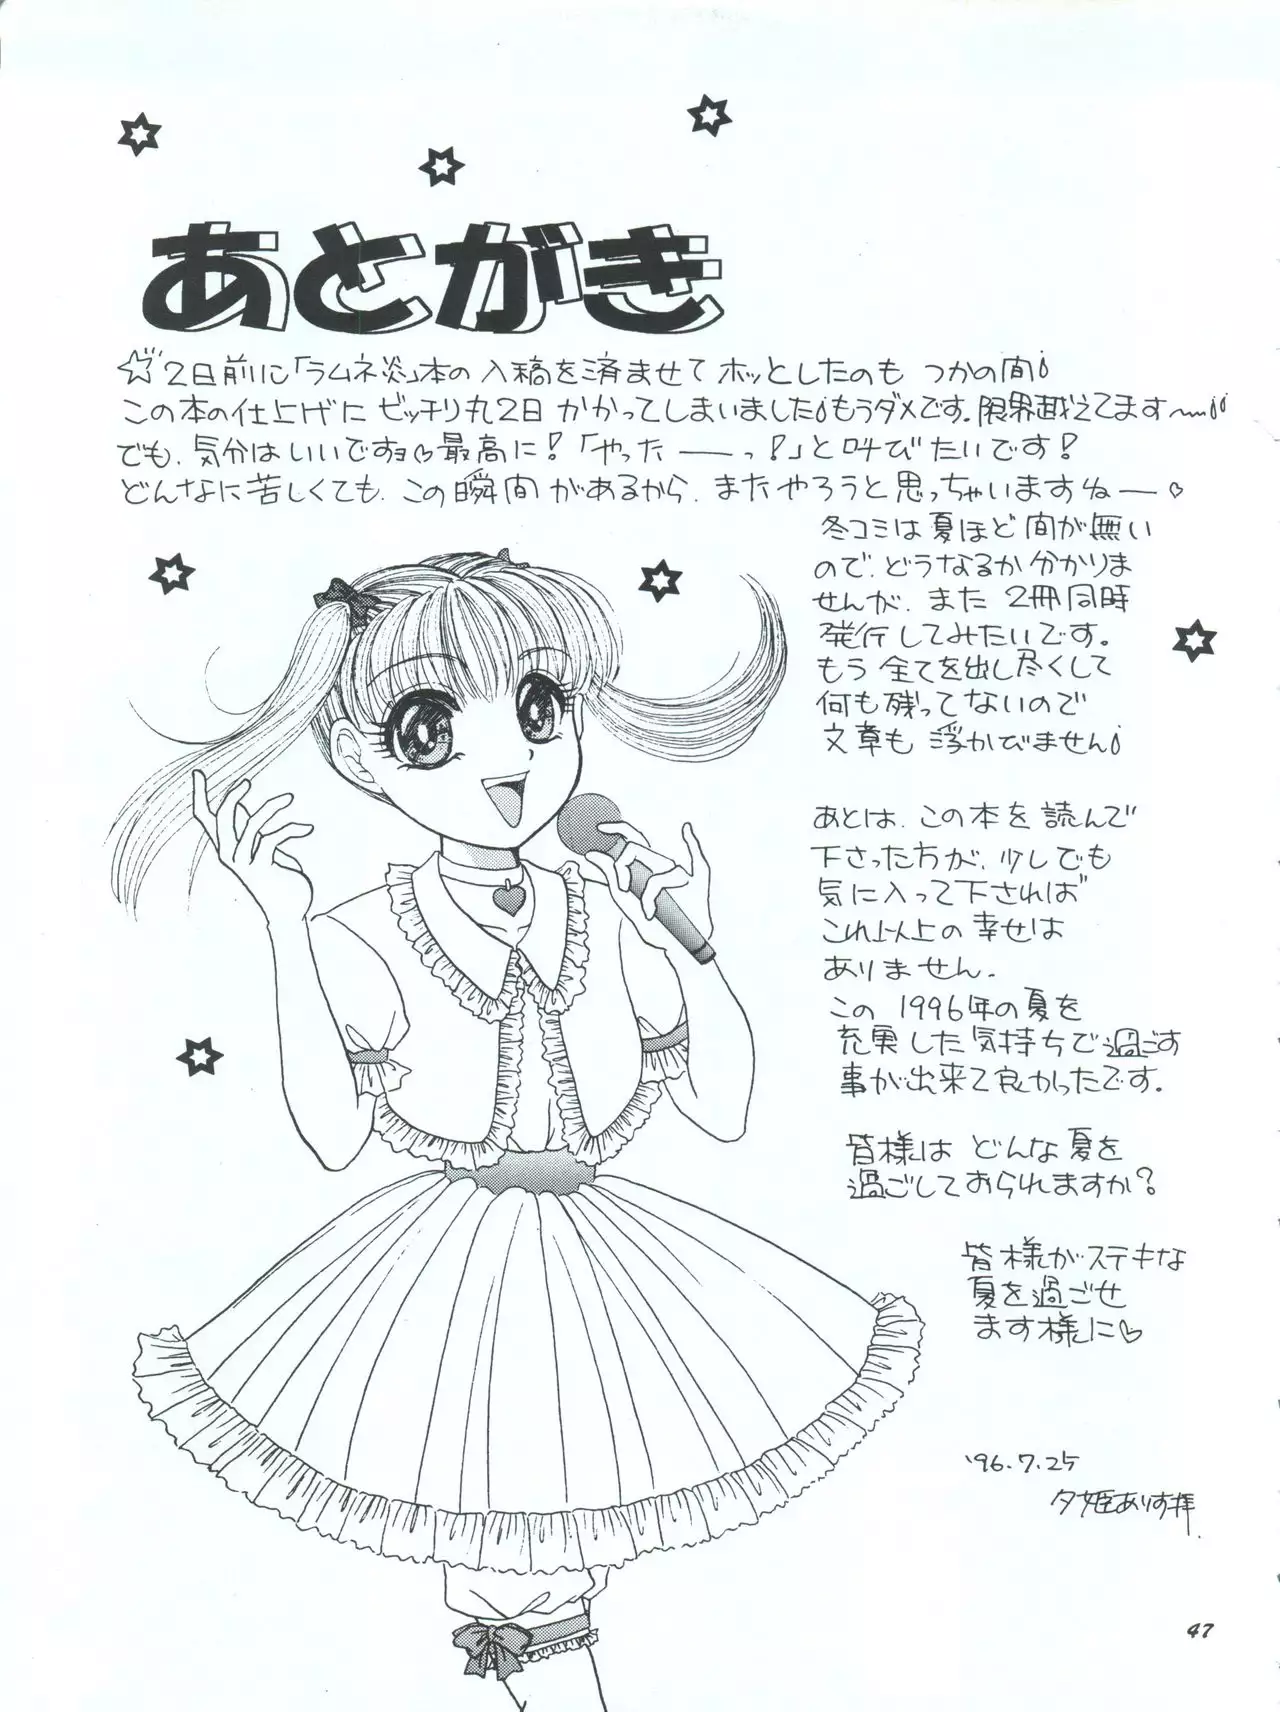 あとがき
☆2日前に「ラムネ炎」本の入稿を済ませてホッとしたのもつかの間
この本の仕上げにビッチリ丸2日かかってしまいました もうダメです。限界越えてます〜
でも、気分はいいですョ♡最高に!「やったーーっ!」と叫びたいです!
どんなに苦しくても、この瞬間があるから、またやろうと思っちゃいますねー♡
冬コミは夏ほど間が無い
ので、どうなるか分かりま
せんが、また2冊同時
発行してみたいです。
もう全てを出し尽くして
何も残ってないので
文章も浮かびません
あとは、この本を読んで
下さった方が、少しでも
気に入って下されば
これ以上の幸せは
ありません。
この1996年の夏を
充実した気持ちで過ごす
事が出来て良かったです。
皆様はどんな夏を
過ごしておられますか?
皆様がステキな
夏を過ごせ
ます様に♡
'96.7.25
夕姫ありす拝
47